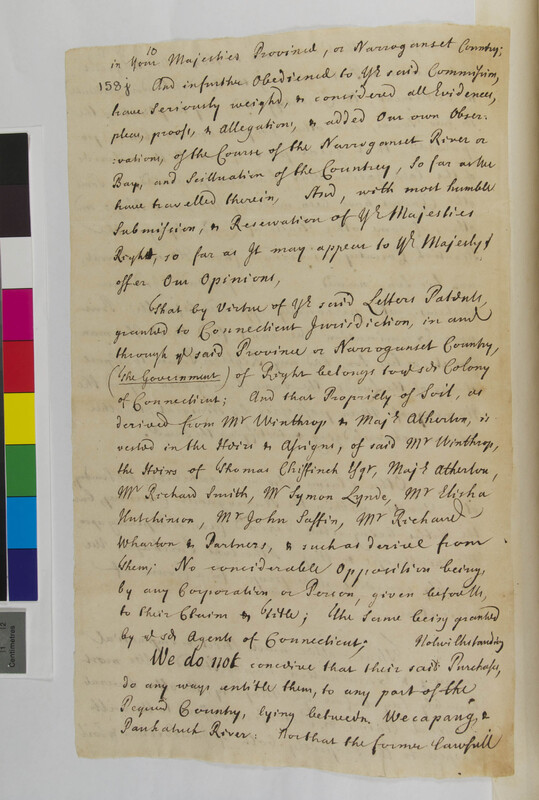 10
in Your Majesties Province, or Narroganset Country;
158
And in further Obedience to Yr said Commission,
have Seriously weight, & considered all Evidences,
pleas, proofs, & Allegations, & added Our own Obser-
vations, of the Course of the Narroganset River or
Bay, and Scittuation of the Countrey, So far as We
have travelled therein, And, with most humble
Submission, & Reservation of Yr Majesties
Right, so far as It may appear to Yr Majesty
offer Our Opinions,
That by Virtue of Yr said Letters Patents,
granted to Connecticut Jurisdiction, in and
through ye said Province or Narroganset Country,
(the Government) of Right belongs to ye sd Colony
of Connecticut; And that Propriety of Soil, as
derived from Mr Winthrop & Majr Atherton, is
vested in the Heirs & Assigns, of said Mr Winthrop,
the Heirs of Thomas Chiffinch Esqr, Majr Atherton,
Mr Richard Smith, Mr Symon Lynde, Mr Elisha
Hutchinson, Mr John Saffin, Mr Richard
Wharton & Partners, & such as derive from
them; No considerable Opposition being,
by any Corporation or Person, given before Us,
to their Claim & Title; the Same being granted
by ye sd Agents of Connecticut; Notwithstanding
We do not conceive that their said Purchases,
do any ways entitle them, to any part of the
Pequid Country, lying between Wecapang, &
Paukatuck River: Nor that the former Lawfull
Centimetres
11 12